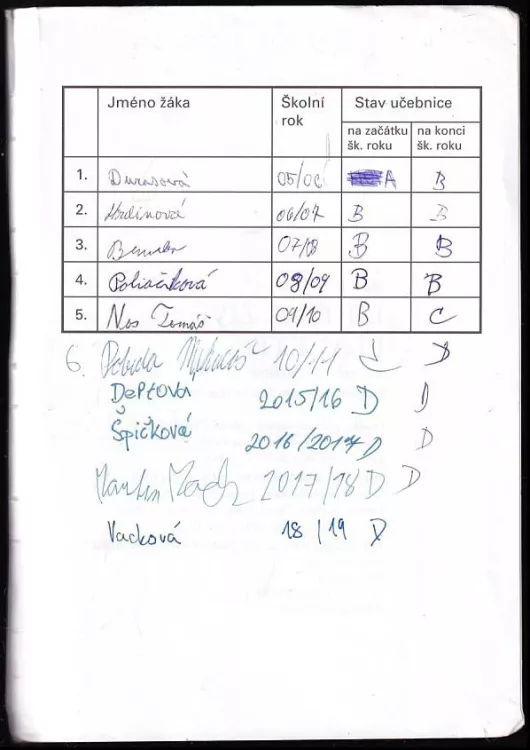 Jméno žáka Školní rok Stav učebnice
na začátku šk. roku na konci šk. roku
1. Durasová 05/06 A B
2. 06/07 B B
3. 07/08 B B
4. Poliačiková 08/09 B B
5. Nos Tomáš 09/10 B C
6. 10/11 D
Deptova 2015/16 D D
Špičková 2016/2017 D D
Martin Zach 2017/18 D D
Vacková 18/19 D